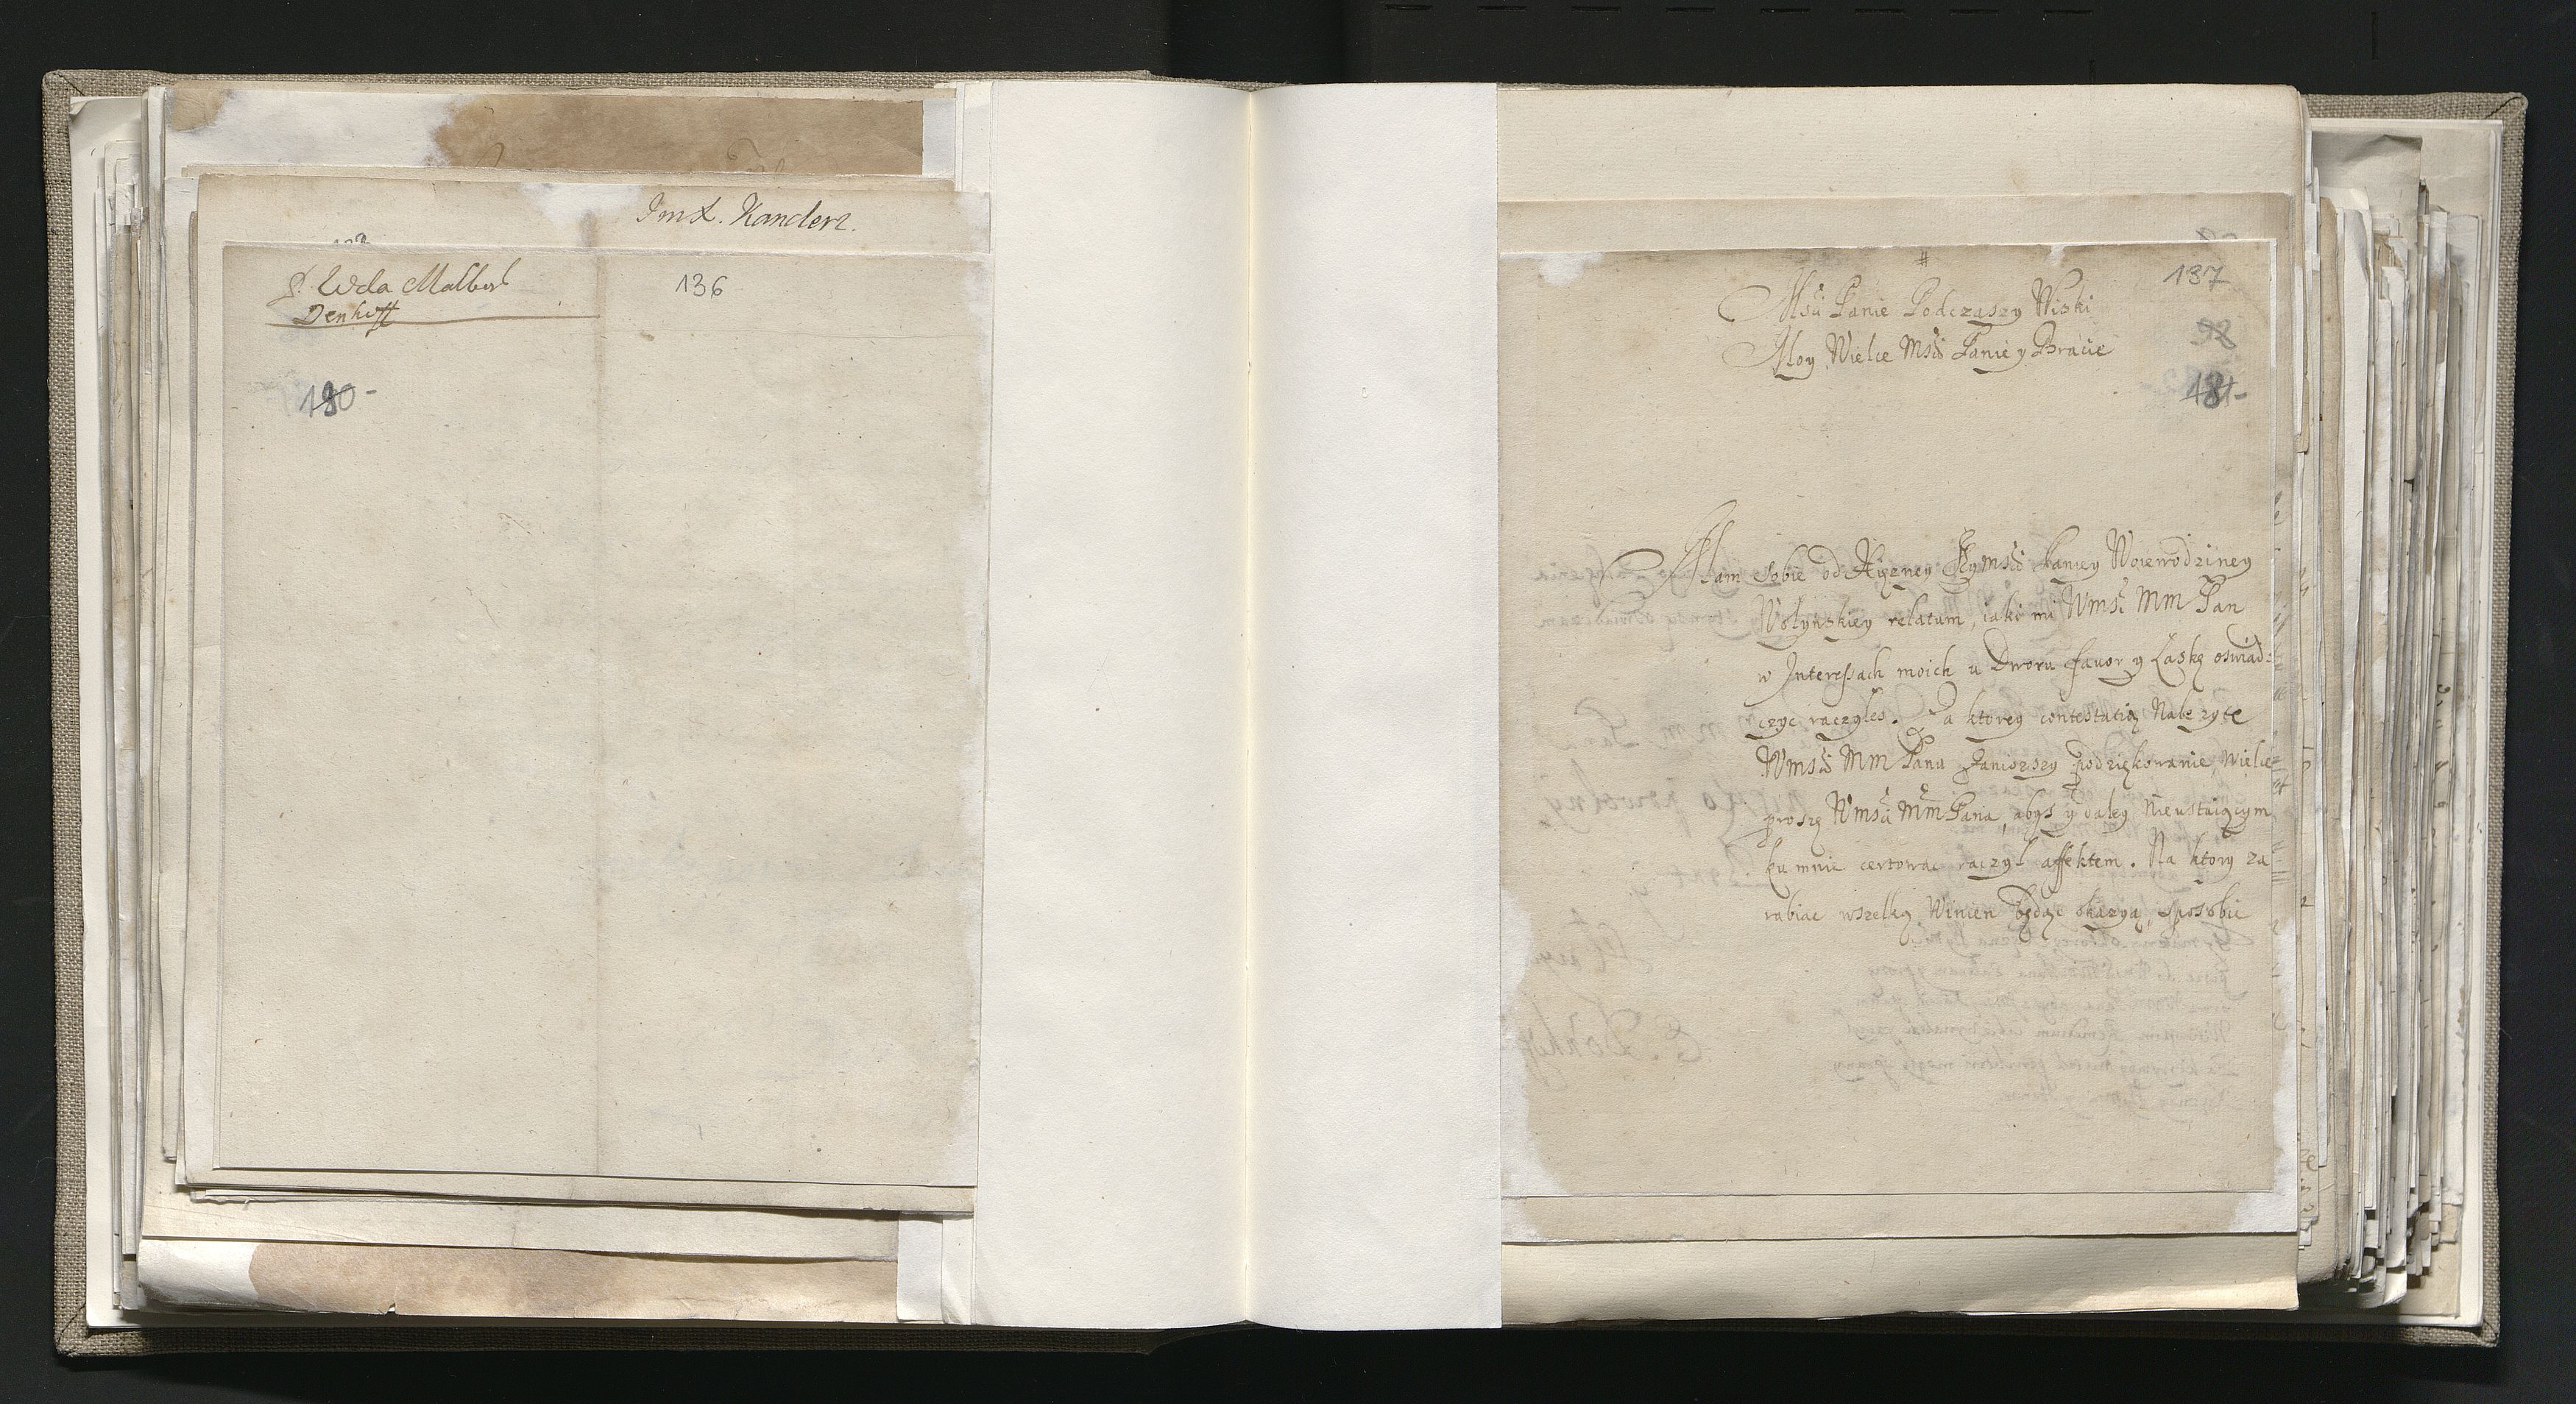 JmX. Kanclerz.
P. Wda Malbor
Denhoff
136
180-
137
Msci Panie Podczaszy Wiski
Moy Wielce Msci Panie y Bracie
92
181-
Mam sobie od Xięzney Jeymsci Paniey Woiewodziney
Wołynskiey relatum, iako mi Wmsc MM Pan
w Interessach moich u Dworu favor y Łaskę oswiad:
czyc raczyłes. Za ktorey contestatią Nalezyte
Wmsci MM Panu Zaniozszy podziękowanie, wielce
proszę Wmsci MM Pana, abys y daley Nieustaiącym
ku mnie certowac raczył affektem. Na ktory za
rabiac wszelką Winien będąc okazyą, sposobie